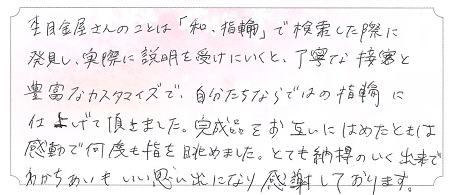 杢目金屋さんのことは「和、指輪」で検索した際に
発見し、実際に説明を受けにいくと、丁寧な接客と
豊富なカスタマイズで、自分たちならではの指輪に
仕上げて頂きました。完成品をお互いにはめたときは
感動で何度も指を眺めました。とても納得のいく出来で
わかちあいもいい思い出になり感謝しております。